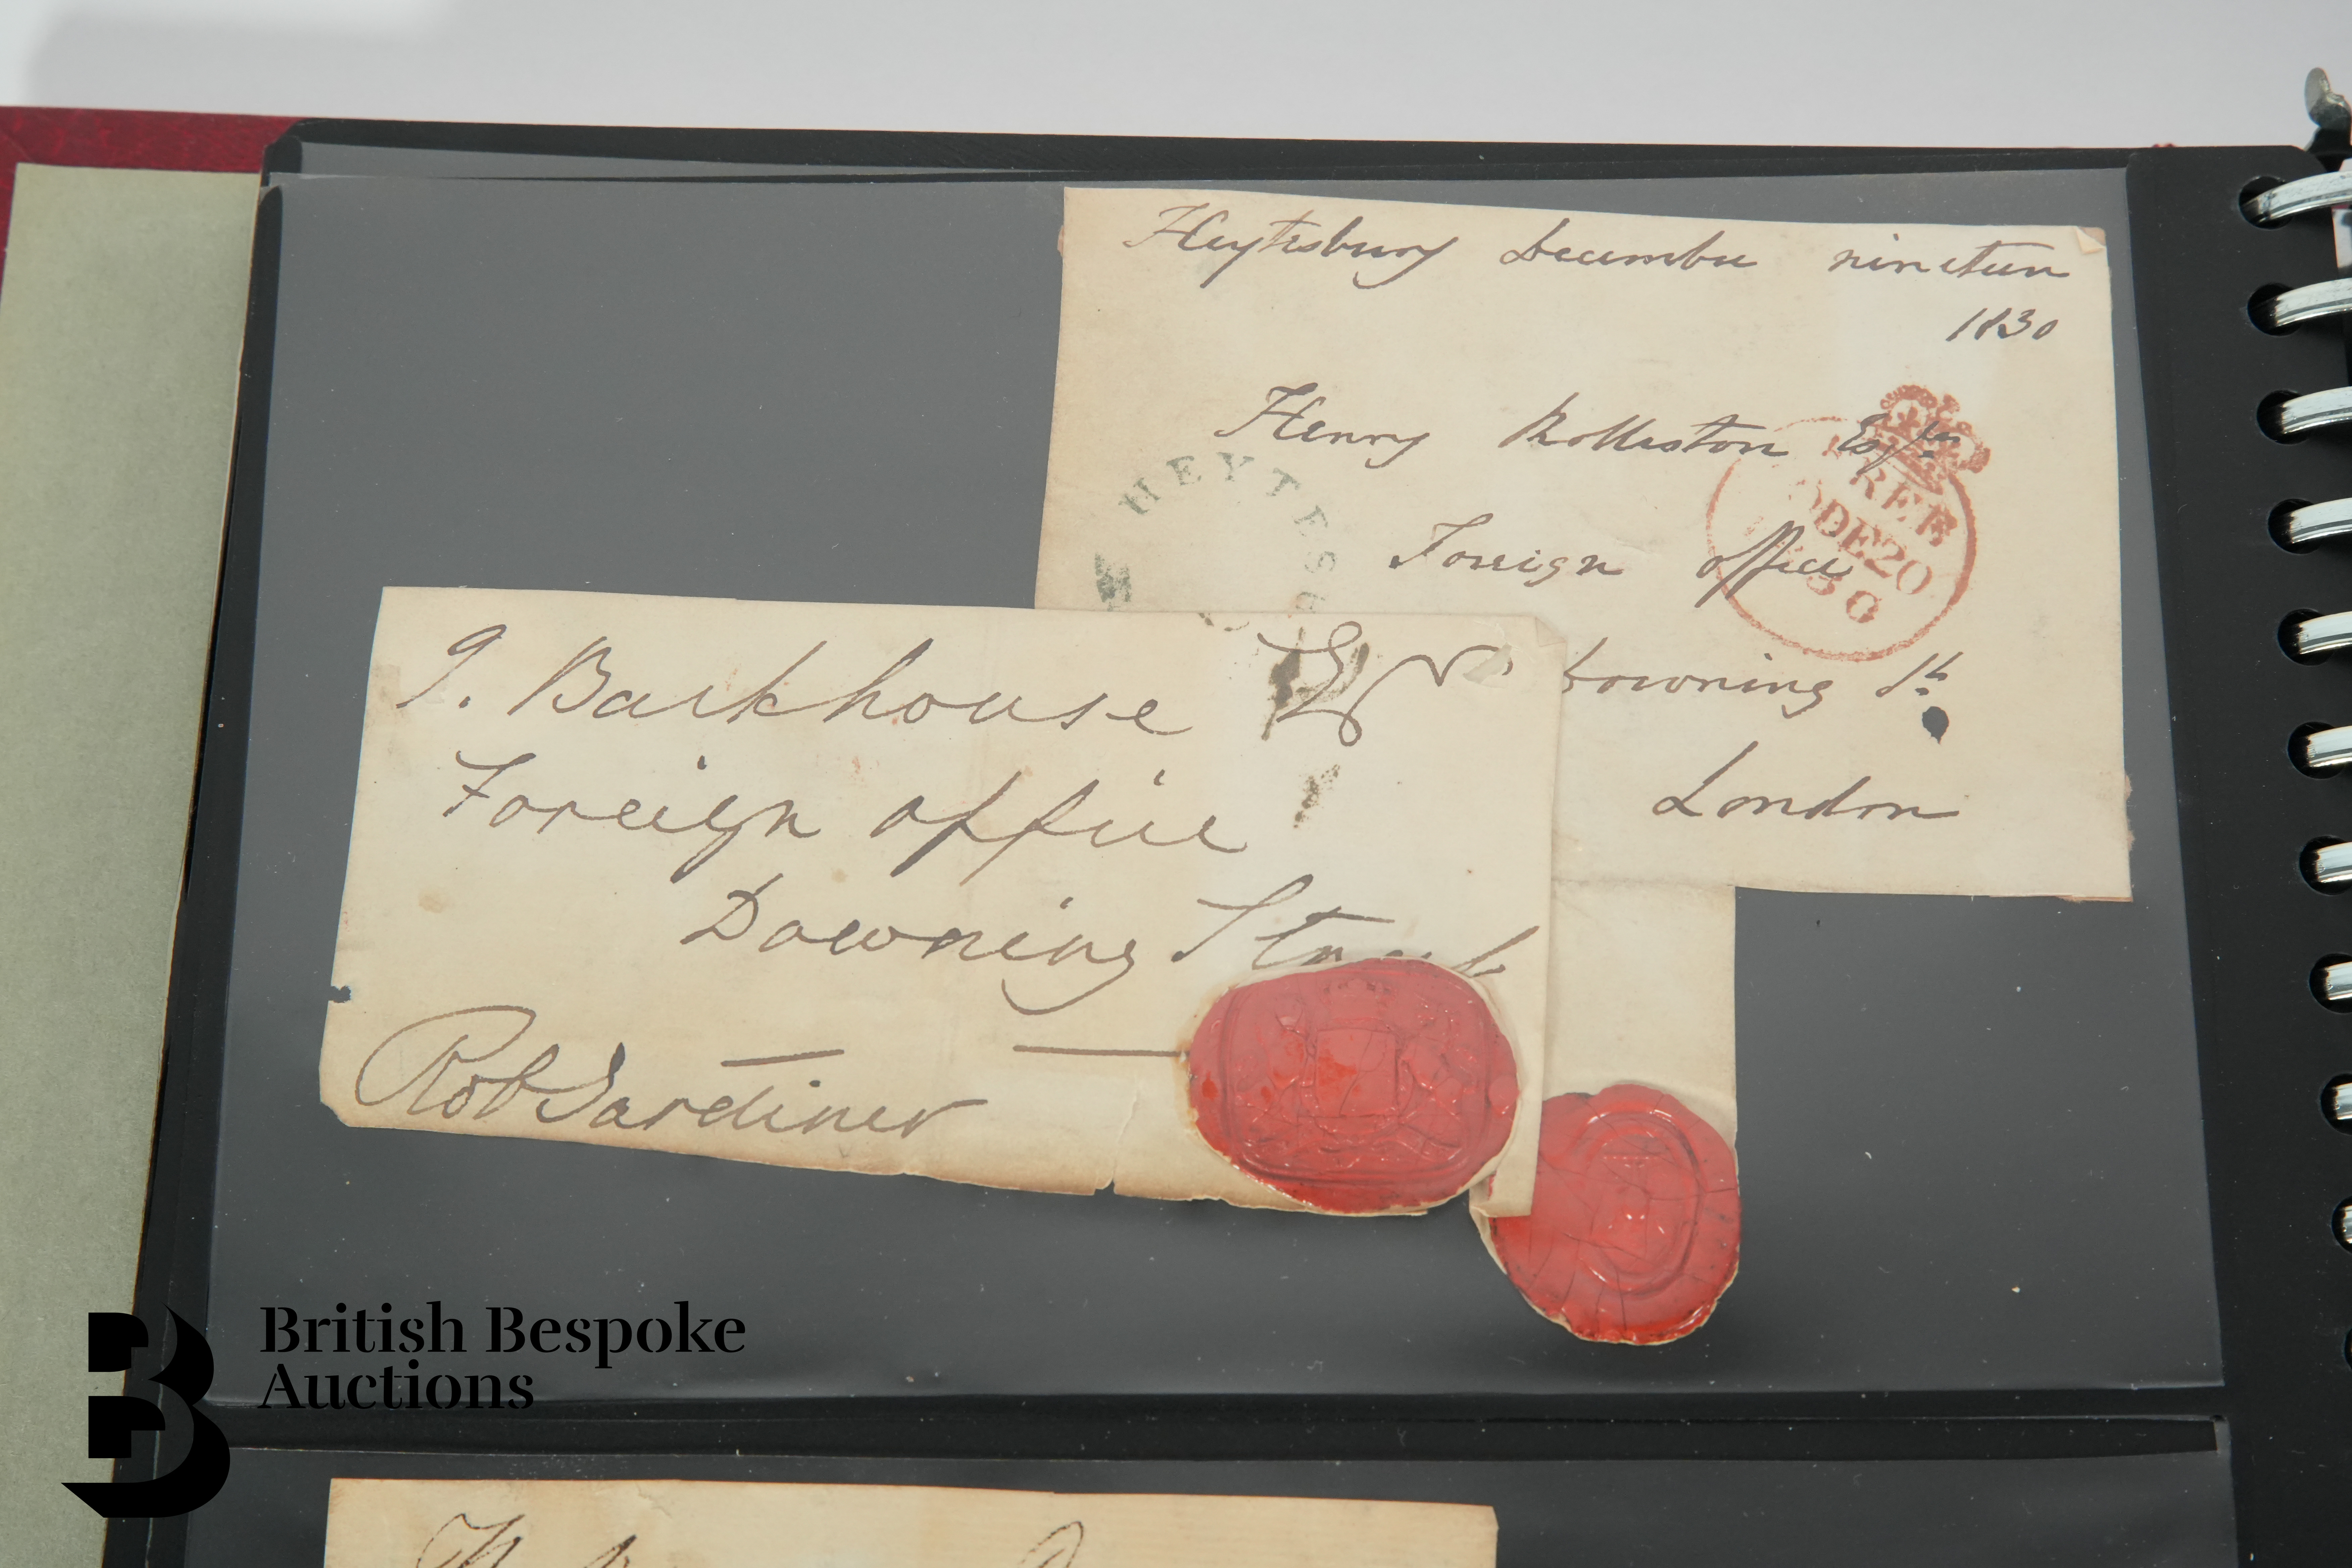 Heytesbury December nineteen
1830
Henry Rolleston Esqre
Foreign office
Downing St.
London
HEYTESB
FREE
DE20
30
J. Backhouse Esqr
Foreign office
Downing Street
Rob Gardiner
British Bespoke
Auctions